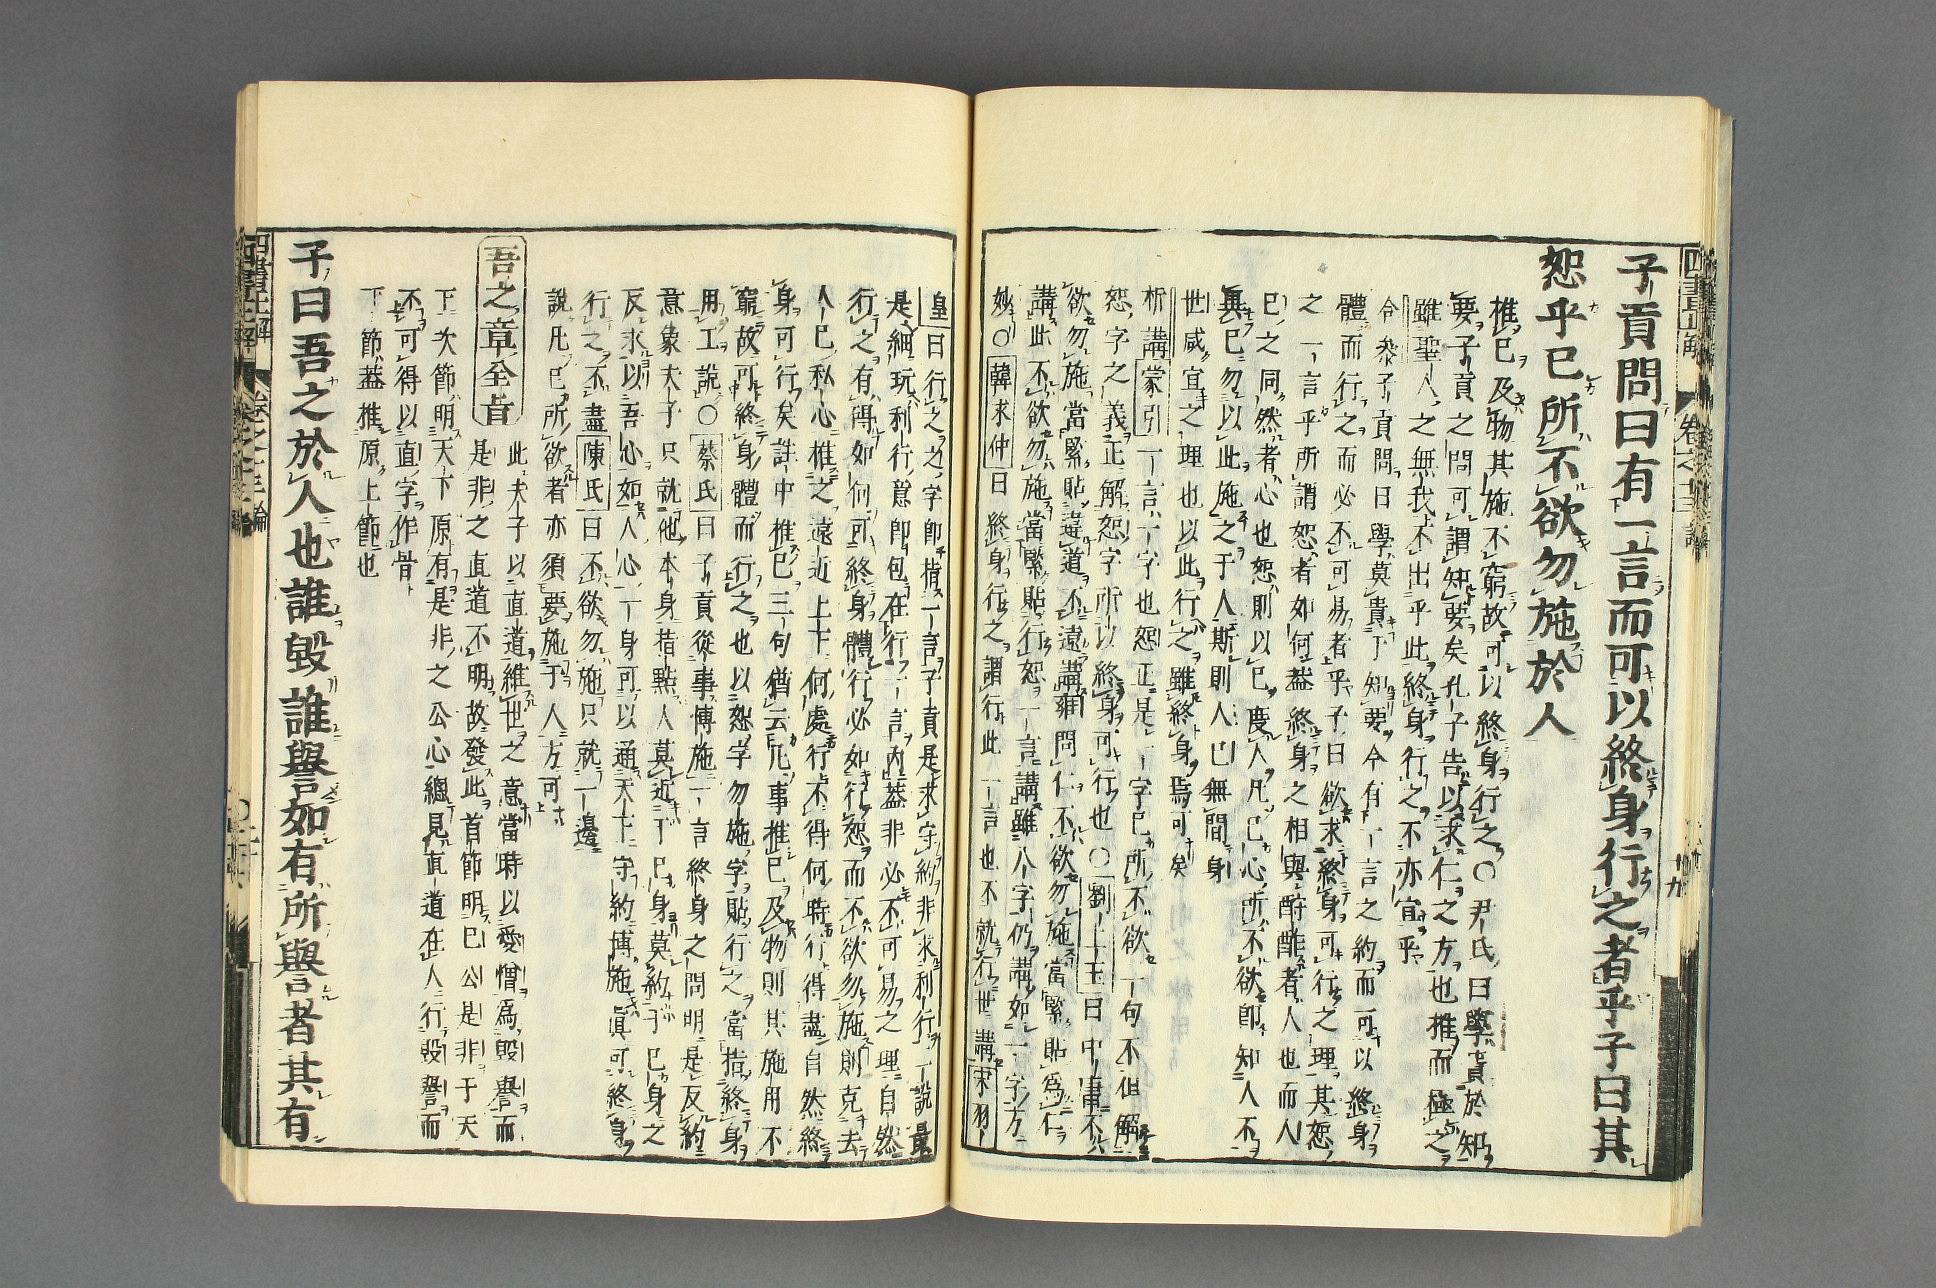 子貢問曰有一言而可以終身行之者乎子曰其
恕乎己所不欲勿施於人
推己及物其施不窮故可以終身行之○尹氏曰學貴於知
要子貢之問可謂知要矣孔子告以求仁之方也推而極之
雖聖人之無我不出乎此終身行之不亦宜乎
今參子貢問曰學莫貴于知要今有一言之約而可以終身
體而行之而必不可易者乎子曰欲求終身可行之理其恕
之一言乎所謂恕者如何蓋終身之相與酧酢者人也而人
己之同然者心也恕則以己度人凡己心所不欲即知人不
異己勿以此施之于人斯則人己無間身
世咸宜之理也以此行之雖終身焉可矣
析講蒙引一言一字也恕正是一字己所不欲一句不但解
恕字之義正解恕字所以終身可行也○劉上玉曰中庸不
欲勿施當緊貼違道不遠講雍問仁不欲勿施當緊貼為仁
講此不欲勿施當緊貼行恕一言講雖八字仍講如一字方
妙○韓求仲曰終身行之謂行此一言也不就行世講宋羽
皇曰行之之字卽指一言子貢是求守約非求利行一說最
是細玩利行意卽包在行一言內蓋非必不可易之理自然
行之有碍如何可終身體行必如行恕而不欲勿施則克去
人己私心推之遠近上下何處行不得何時行得盡自然終
身可行矣註中推己三句猶云凡事推己及物則其施用不
窮故可終身體而行之也以恕字勿施字貼行之當指終身
用工說○蔡氏曰子貢從事博施一言終身之問明是反約
意象夫子只就他本身指點人莫近于己身莫約于己身之
反求以吾心如人心一身可以通天下守約博施眞可終身
行之不盡陳氏曰不欲勿施只就一邊
說凡己所欲者亦須要施于人方可
吾之章全旨
此夫子以直道維世之意當時以愛憎為毀譽而
是非之直道不明故發此首節明己公是非于天
下次節明天下原有是非之公心總見直道在人行毀譽而
不可得以直字作骨
下節蓋推原上節也
子曰吾之於人也誰毀誰譽如有所譽者其有